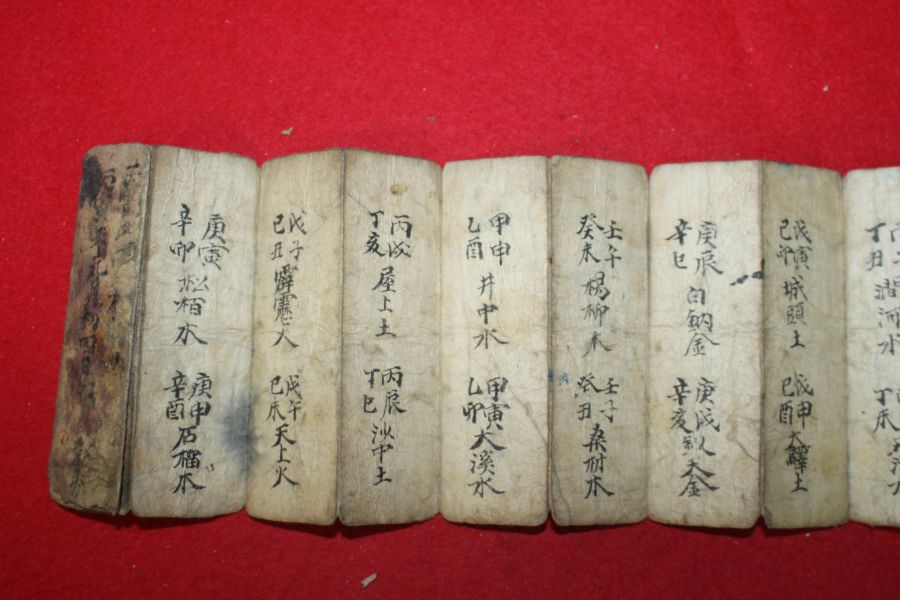 丁丑
澗河水
戊寅
己卯
城頭土
戊申
己酉
大驛土
庚辰
辛巳
白鈉金
庚戌
辛亥
金
壬午
癸未
楊柳木
壬子
癸丑
桑柘木
甲申
乙酉
井中水
甲寅
乙卯
大溪水
丙戌
丁亥
屋上土
丙辰
丁巳
沙中土
戊子
己丑
霹靂火
戊午
己未
天上火
庚寅
辛卯
松栢木
庚申
辛酉
石榴木